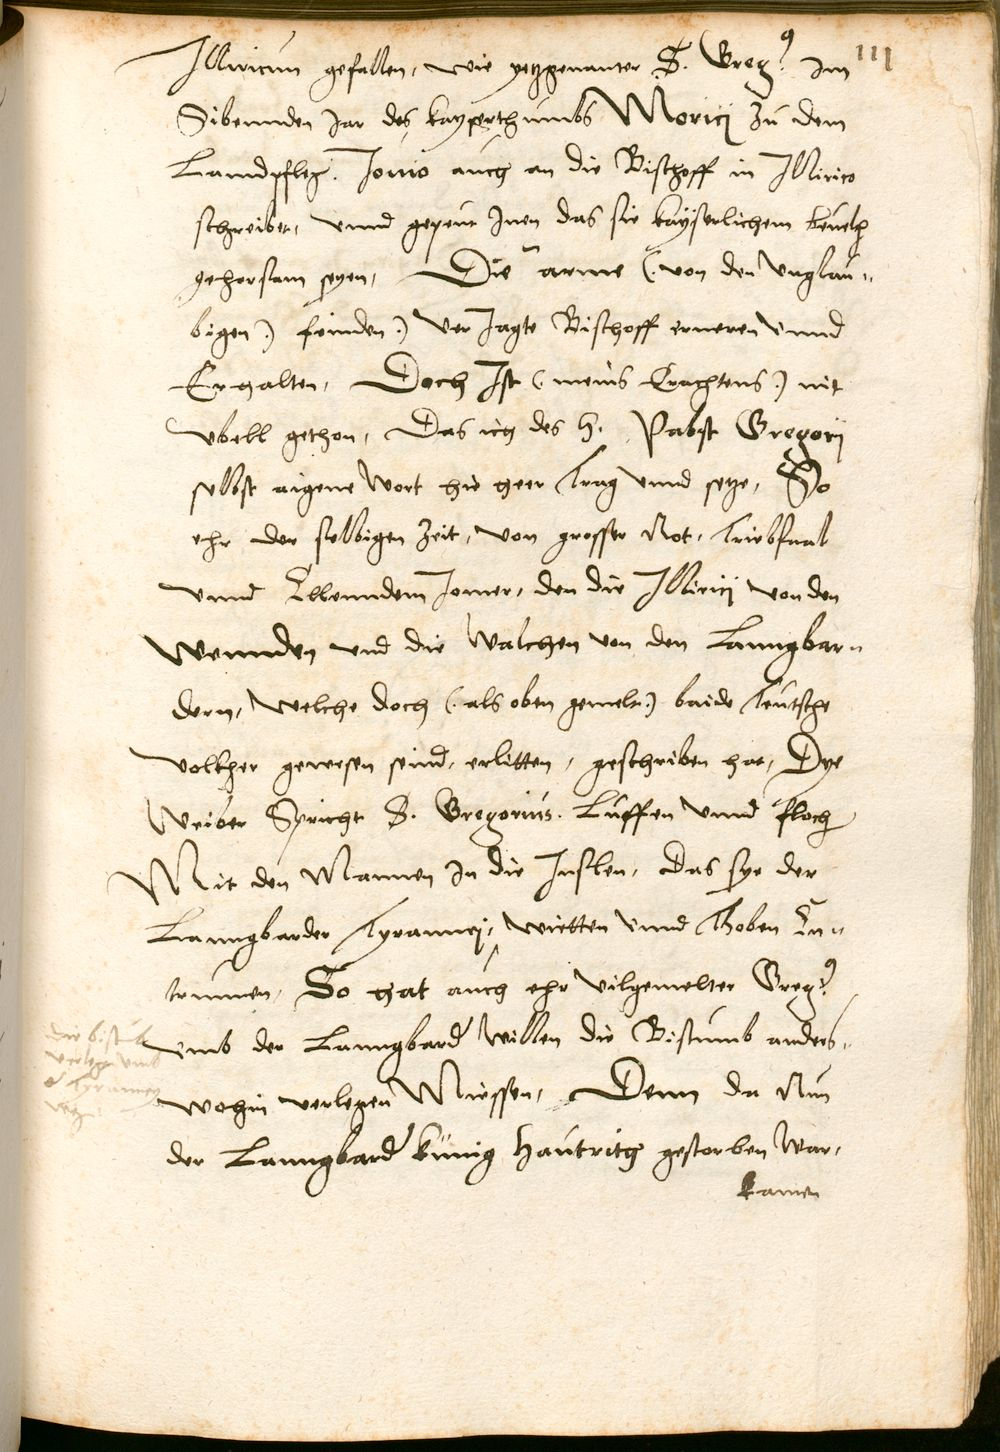 111
Illiricum gefallen, wie yetzgenanter S. Greg⁹. Im
Sibennden Jar des kayserthumbs Moricij zů dem
Lanndpfleg. Jouio auch an die Bischoff in Illirico
schreiben, vnnd gepeut Inen das sie kayserlichem beuelh
gehorsam seyen, Die arme (: von den Vnglau„
bigen :) feinden :) ver Jagte Bischoff erneren vnnd
Erhalten, Doch Ist (: meins Erachtens :) nit
vbell gethon, Das ich des H. Pabst Gregorij
selbst aigene Wort hie heer Trag vnnd setze, So
ehr der selbigen Zeit, von grosser Not, Triebsaal
vnnd Ellenndem Jomer, den die Illirici von den
Wennden vnd die Walchen von den Lanngbar„
dern, Welche doch (: als oben gemelt :) baide Teutsche
volkher gewesen seind, erlitten, geschriben hat, Dye
Weiber Spricht S. Gregorius. Luffen vnnd floch
Mit den Mannen In die Inslen, Das sye der
Lanngbarder Tyranney, wietten vnnd Thoben En„
trunnen, So hat auch ehr vilgemelter Greg⁹.
vmb der Lanngbard willen die Bistumb anders„
wohin verlegen Miessen, Denn da Nun
der Lanngbard künig Hautrich gestorben War,
kamen
die bistūb
verlegen vmb
d Tyranney